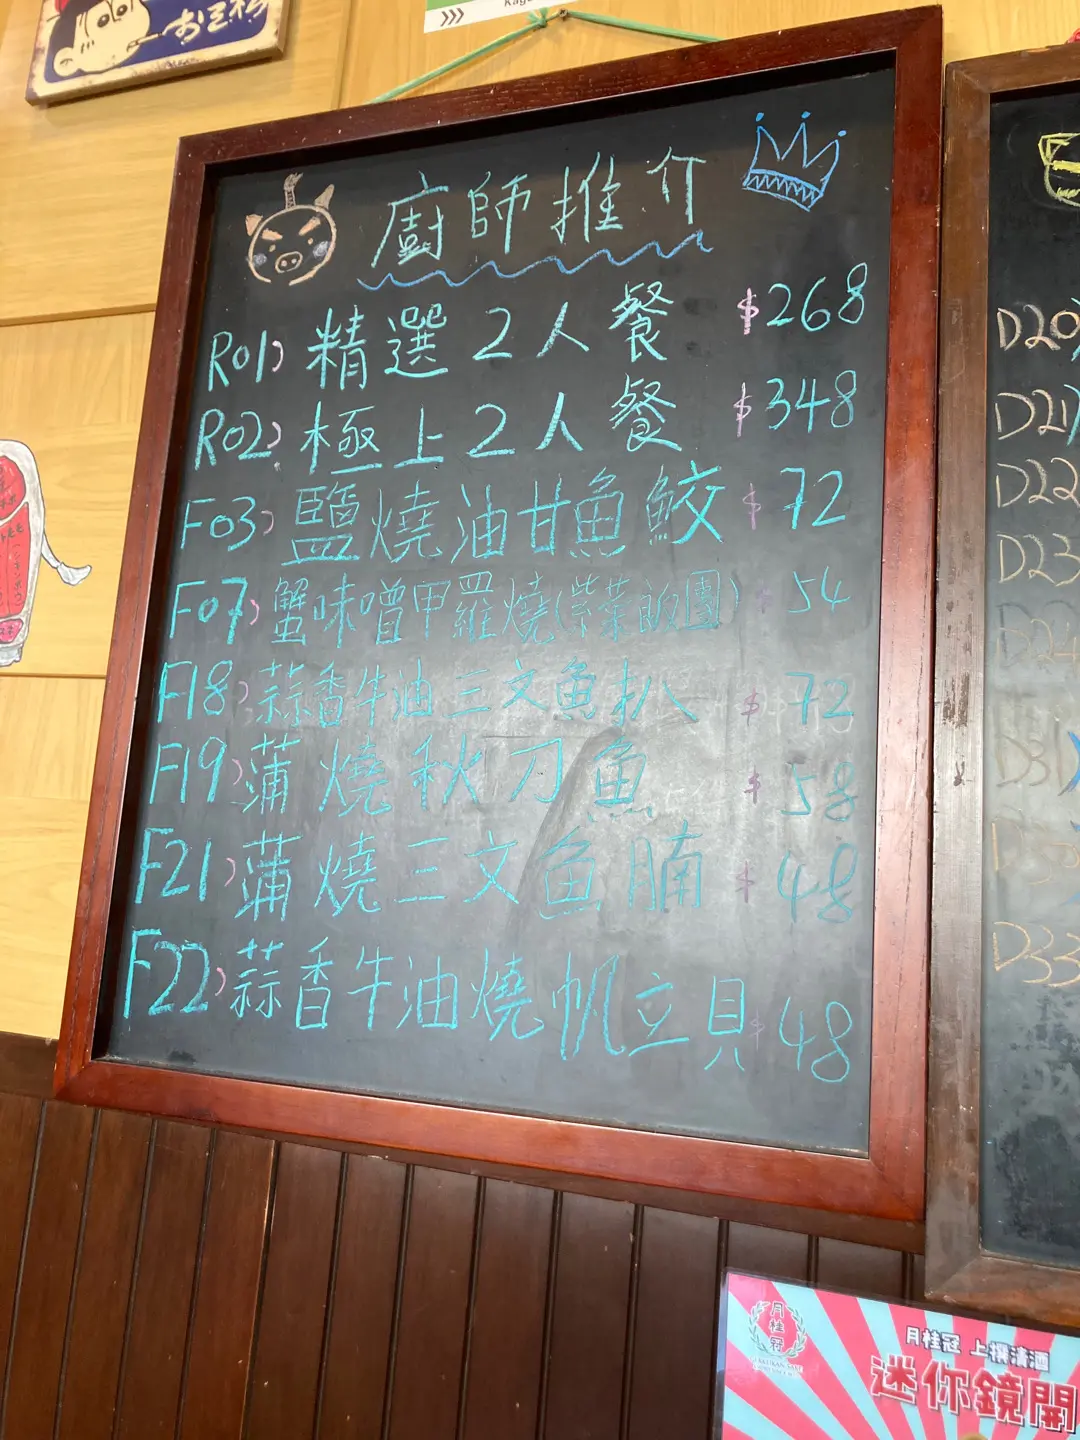 廚師推介
R01) 精選2人餐 $268
R02) 極上2人餐 $348
F03) 鹽燒油甘魚鮫 $72
F07) 蟹味噌甲羅燒(紫菜飯團) $54
F18) 蒜香牛油三文魚扒 $72
F19) 蒲燒秋刀魚 $58
F21) 蒲燒三文魚腩 $48
F22) 蒜香牛油燒帆立貝 $48
D20)
D21)
D22
D23
D24
D31)
D33
月桂冠
月桂冠 上撰清酒
迷你鏡開